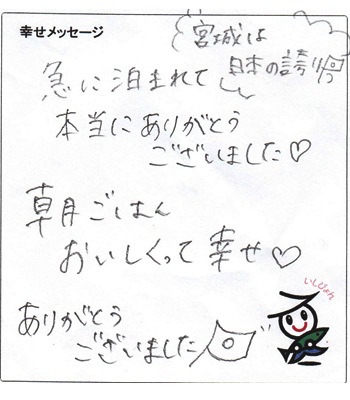 幸せメッセージ
宮城は
日本の誇り
急に泊まれて
本当にありがとう
ございました♡
朝ごはん
おいしくって幸せ♡
ありがとう
ございました
いしぴょん